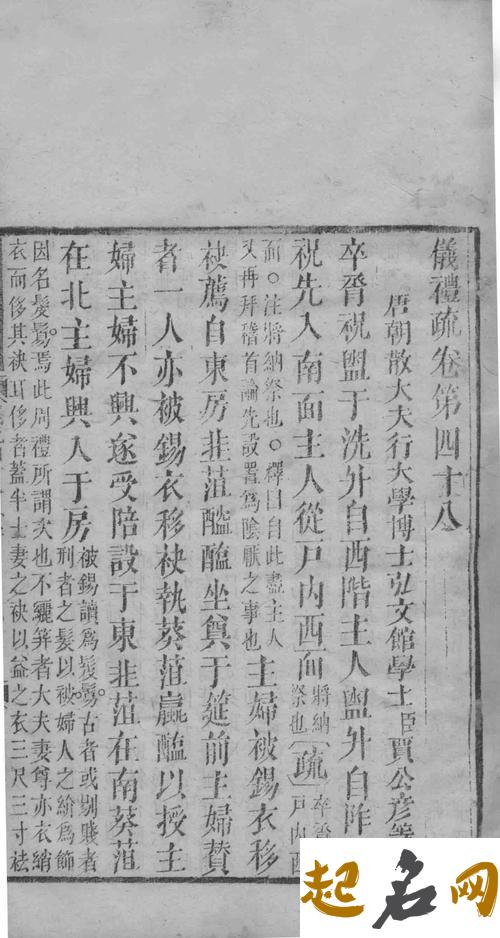 儀禮疏卷第四十八
唐朝散大夫行大學博士弘文館學士臣賈公彥等
卒脀祝盥于洗升自西階主人盥升自阼
祝先入南面主人從戶內西面將納祭也疏卒脀戶內西
面○注將納祭也○釋曰自此盡主人
又再拜稽首論先設置爲陰厭之事也
主婦被錫衣移
袂薦自東房韭菹醓醢坐奠于筵前主婦贊
者一人亦被錫衣移袂執葵菹蠃醢以授主
婦主婦不興遂受陪設于東韭菹在南葵菹
在北主婦興入于房
被錫讀爲髲鬄古者或剔賤者
刑者之髮以被婦人之紒爲飾
因名髲鬄焉此周禮所謂次也不纚笄者大夫妻尊亦衣綃
衣而侈其袂耳侈者蓋半士妻之袂以益之衣三尺三寸袪
起名网